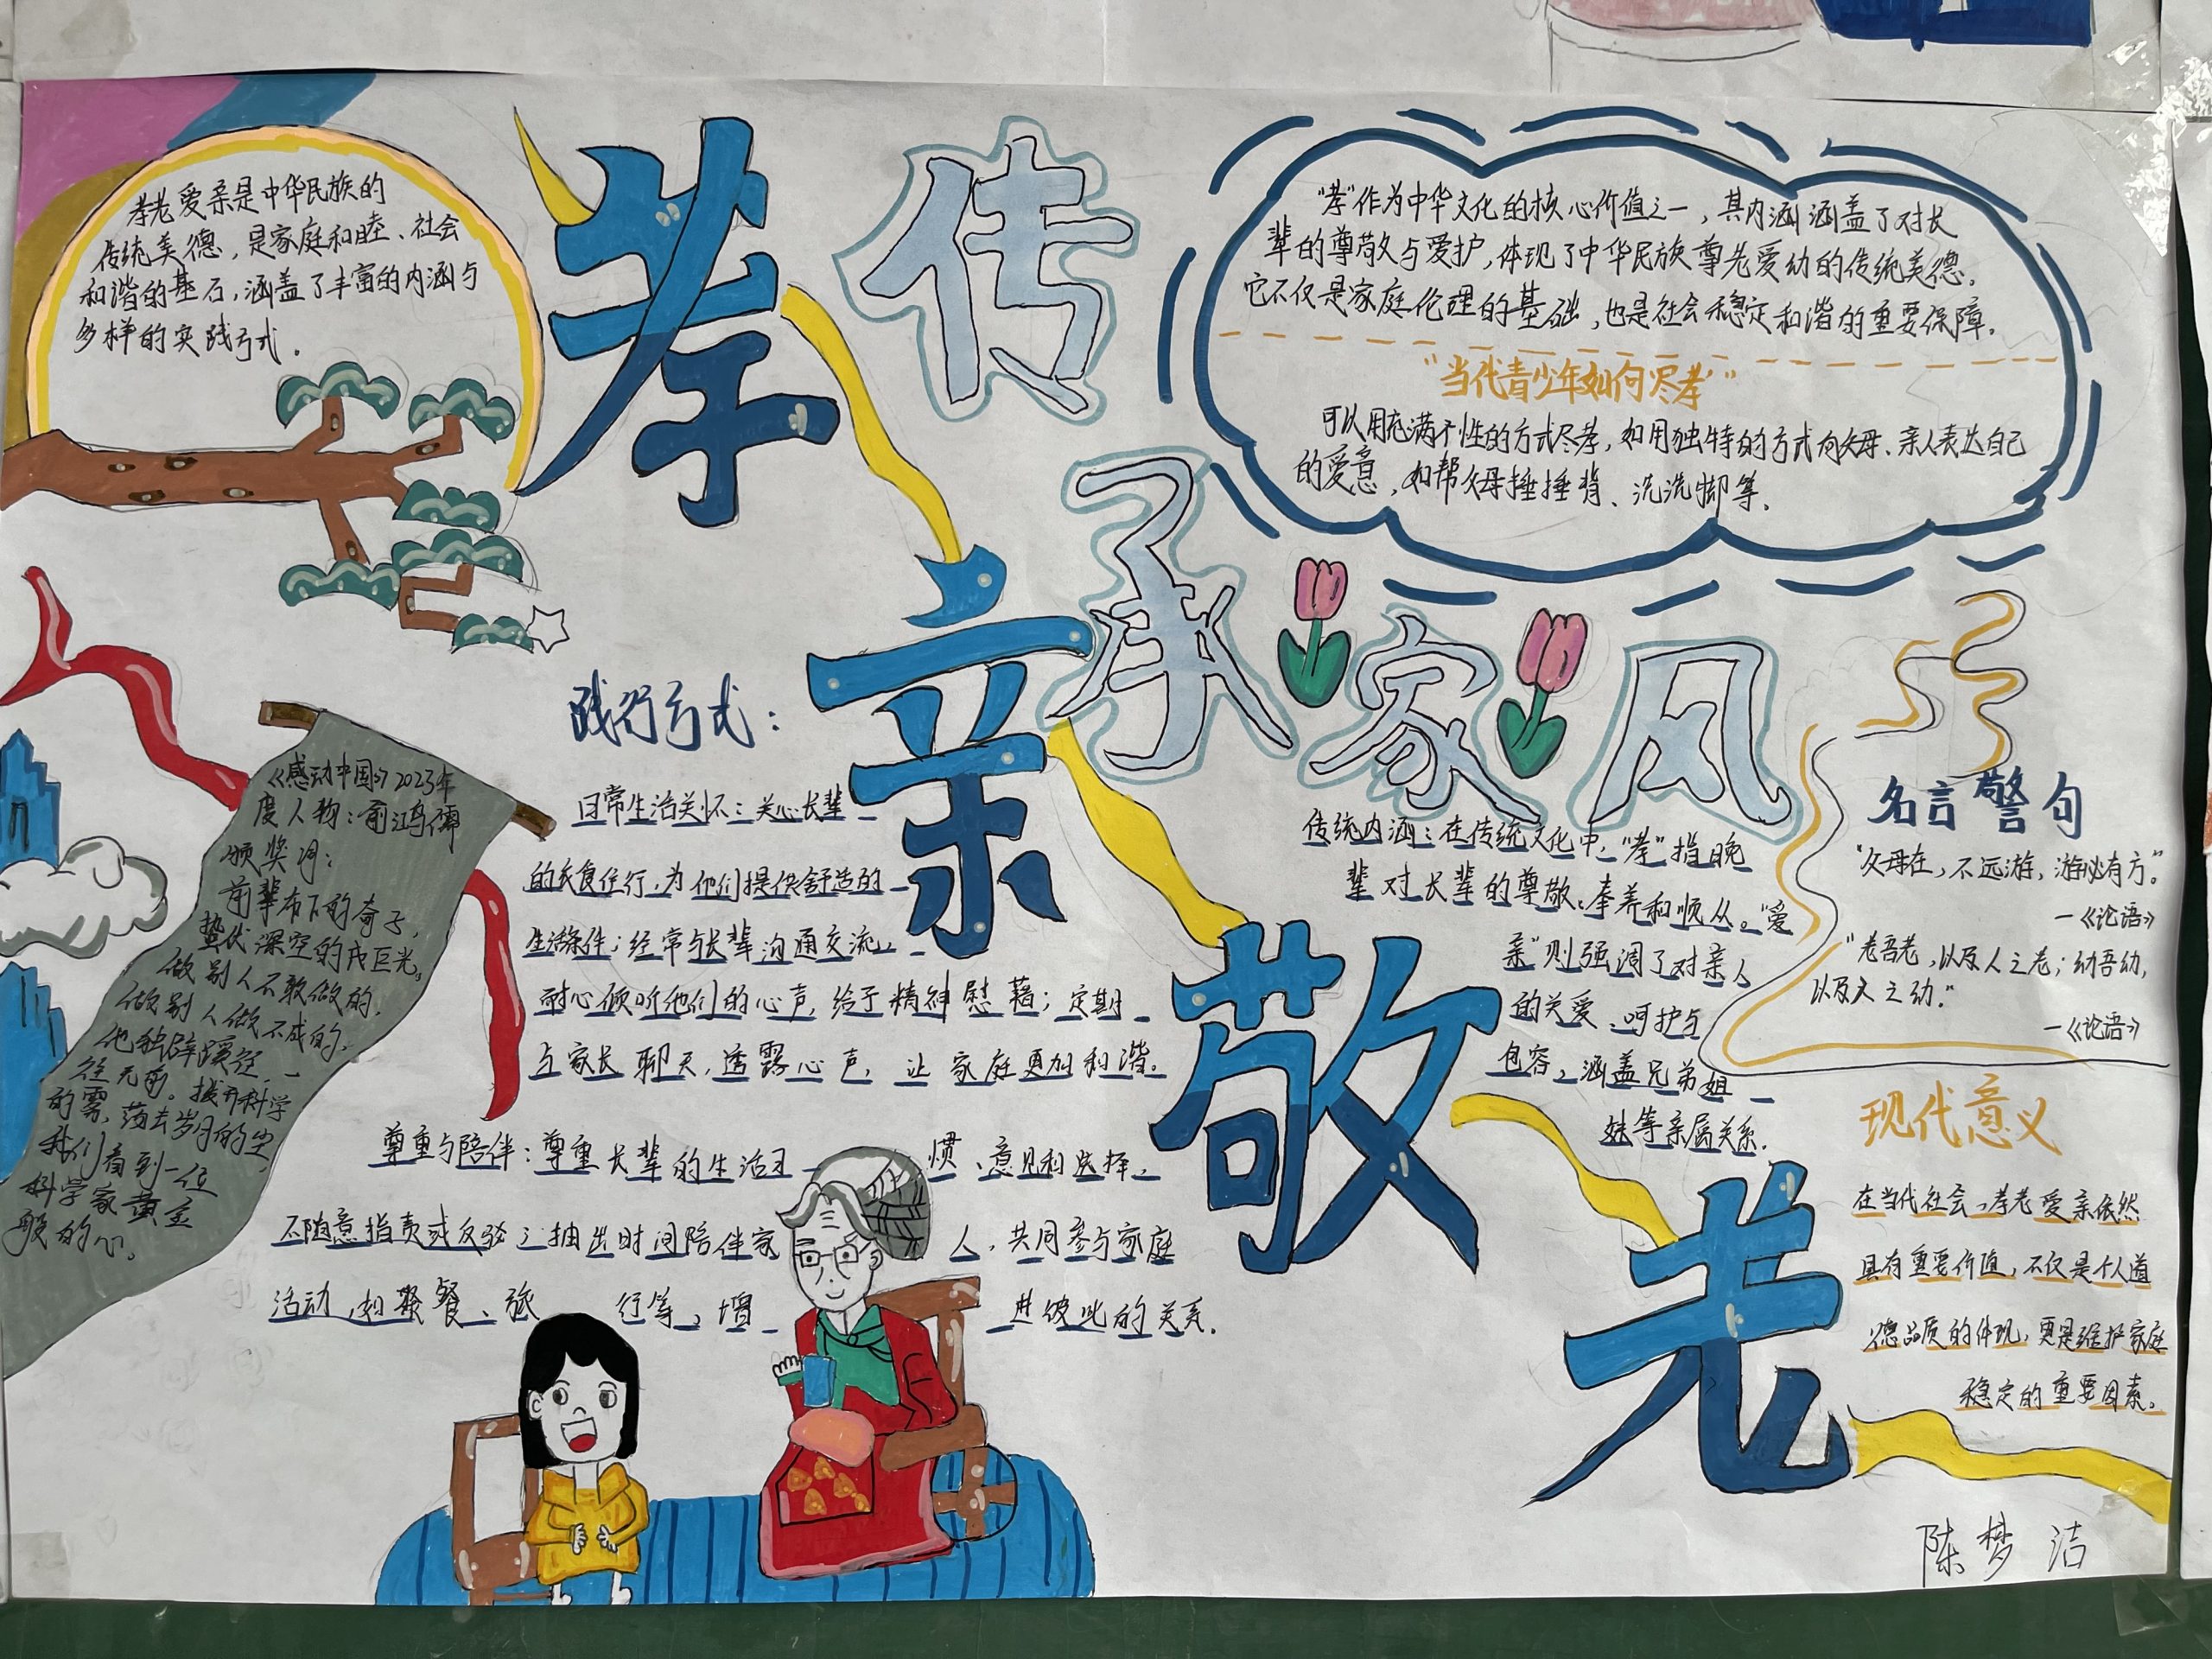 孝老爱亲是中华民族的
传统美德，是家庭和睦、社会
和谐的基石，涵盖了丰富的内涵与
多样的实践方式。
孝亲敬老
传承家风
"孝"作为中华文化的核心价值之一，其内涵涵盖了对长
辈的尊敬与爱护，体现了中华民族尊老爱幼的传统美德。
它不仅是家庭伦理的基础，也是社会稳定和谐的重要保障。
"当代青少年如何尽孝"
可以用充满个性的方式尽孝，如用独特的方式向父母、亲人表达自己
的爱意，如帮父母捶捶背、洗洗脚等。
《感动中国》2023年
度人物：俞鸿儒
颁奖词：
前辈布下的奇子，
蛰伏深空的成巨光。
做别人不敢做的，
做别人做不成的，
他独辟蹊径，一
往无前。拨开科学
的雾，荡去岁月的尘，
我们看到一位
科学家黄金
般的心。
践行方式：
日常生活关怀：关心长辈
的衣食住行，为他们提供舒适的
生活条件；经常与长辈沟通交流，
耐心倾听他们的心声，给予精神慰藉；定期
与家长聊天，透露心声，让家庭更加和谐。
尊重与陪伴：尊重长辈的生活习惯、意见和选择，
不随意指责或反驳；抽出时间陪伴家人，共同参与家庭
活动，如聚餐、旅行等，增进彼此的关系。
传统内涵：在传统文化中，"孝"指晚
辈对长辈的尊敬、孝养和顺从。"爱
亲"则强调了对亲人
的关爱、呵护与
包容，涵盖兄弟姐
妹等亲属关系.
名言警句
"父母在，不远游，游必有方。"
—《论语》
"老吾老，以及人之老；幼吾幼，
以及人之幼."
—《论语》
现代意义
在当代社会，孝老爱亲依然
具有重要价值，不仅是个人道
德品质的体现，更是维护家庭
稳定的重要因素。
陈梦洁